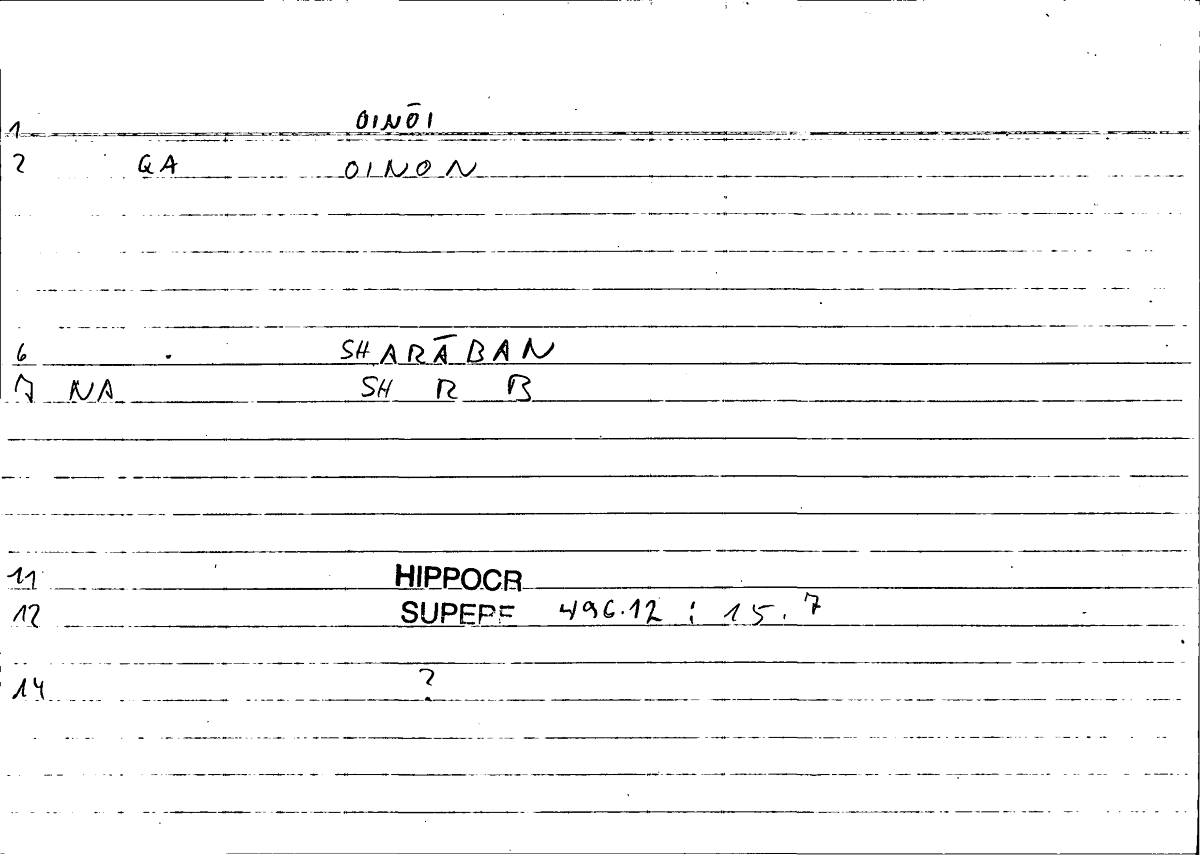 1 OINŌI
2 QA OINON
6 . SHARĀBAN
7 NA SH R B
11 HIPPOCR
12 SUPERF 496.12 : 15.7
14 ?